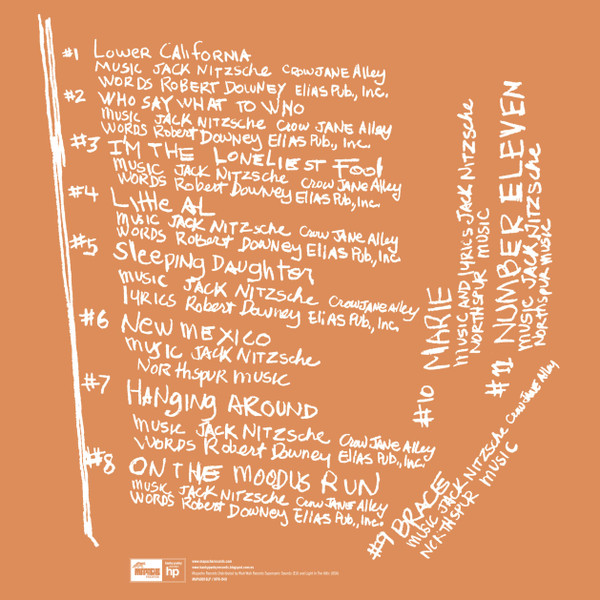 #1 Lower California
Music Jack Nitzsche Crow Jane Alley
Words Robert Downey Elias Pub., Inc.
#2 Who Say What To Who
Music Jack Nitzsche Crow Jane Alley
Words Robert Downey Elias Pub., Inc.
#3 I'm The Loneliest Fool
Music Jack Nitzsche Crow Jane Alley
Words Robert Downey Elias Pub., Inc.
#4 Little Al
Music Jack Nitzsche Crow Jane Alley
Words Robert Downey Elias Pub., Inc.
#5 Sleeping Daughter
Music Jack Nitzsche Crow Jane Alley
Lyrics Robert Downey Elias Pub., Inc.
#6 New Mexico
Music Jack Nitzsche
Northspur Music
#7 Hanging Around
Music Jack Nitzsche Crow Jane Alley
Words Robert Downey Elias Pub., Inc.
#8 On The Moodus Run
Music Jack Nitzsche Crow Jane Alley
Words Robert Downey Elias Pub., Inc.
#9 Bracie
Music Jack Nitzsche Crow Jane Alley
Northspur Music
#10 Marie
Music and Lyrics Jack Nitzsche
Northspur Music
#11 Number Eleven
Music Jack Nitzsche
Northspur Music
hp